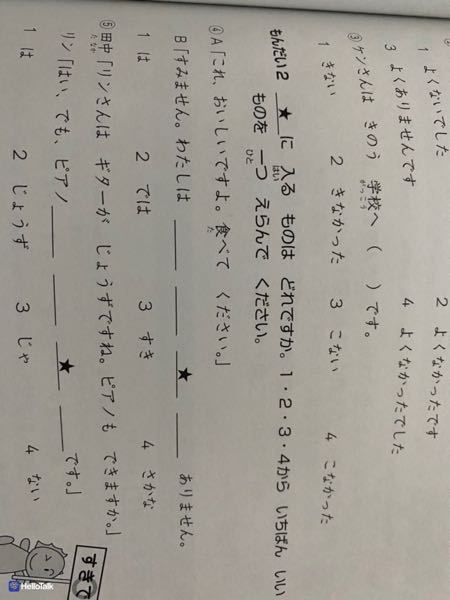 1 よくないでした 2 よくなかったです
3 よくありませんです 4 よくなかったでした
③ ケンさんは きのう 学校へ （ ）です。
がっこう
1 きない 2 きなかった 3 こない 4 こなかった
もんだい2 ★に 入る ものは どれですか。1・2・3・4から いちばん いい
はい
ものを 一つ えらんで ください。
ひと
④ A「これ、おいしいですよ。食べて ください。」
た
B「すみません。わたしは ＿＿ ＿＿ ★ ＿＿ ありません。
1 は 2 では 3 すき 4 さかな
⑤ 田中「リンさんは ギターが じょうずですね。ピアノも できますか。」
たなか
リン「はい、でも、ピアノ ＿＿ ＿＿ ★ ＿＿ です。」
1 は 2 じょうず 3 じゃ 4 ない
すきで
HelloTalk